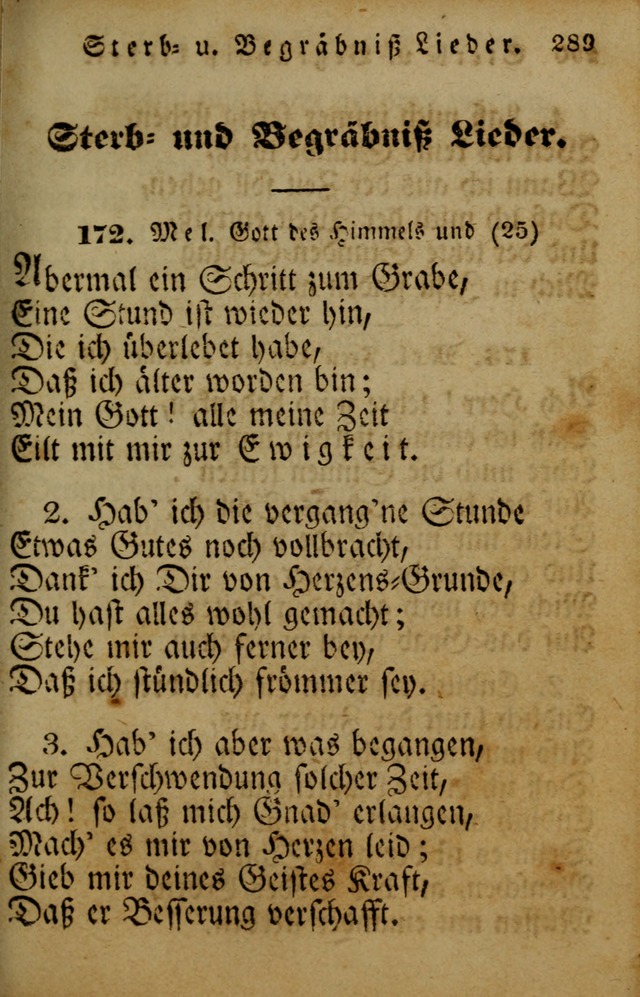 Sterb= u. Begräbniß Lieder. 289
Sterb= und Begräbniß Lieder.
172. Mel. Gott des Himmels und (25)
Abermal ein Schritt zum Grabe,
Eine Stund ist wieder hin,
Die ich überlebet habe,
Daß ich älter worden bin;
Mein Gott! alle meine Zeit
Eilt mit mir zur Ewigkeit.
2. Hab' ich die vergang'ne Stunde
Etwas Gutes noch vollbracht,
Dank' ich Dir von Herzens=Grunde,
Du hast alles wohl gemacht;
Stehe mir auch ferner bey,
Daß ich stündlich frömmer sey.
3. Hab' ich aber was begangen,
Zur Verschwendung solcher Zeit,
Ach! so laß mich Gnad' erlangen,
Mach' es mir von Herzen leid;
Gieb mir deines Geistes Kraft,
Daß er Besserung verschafft.